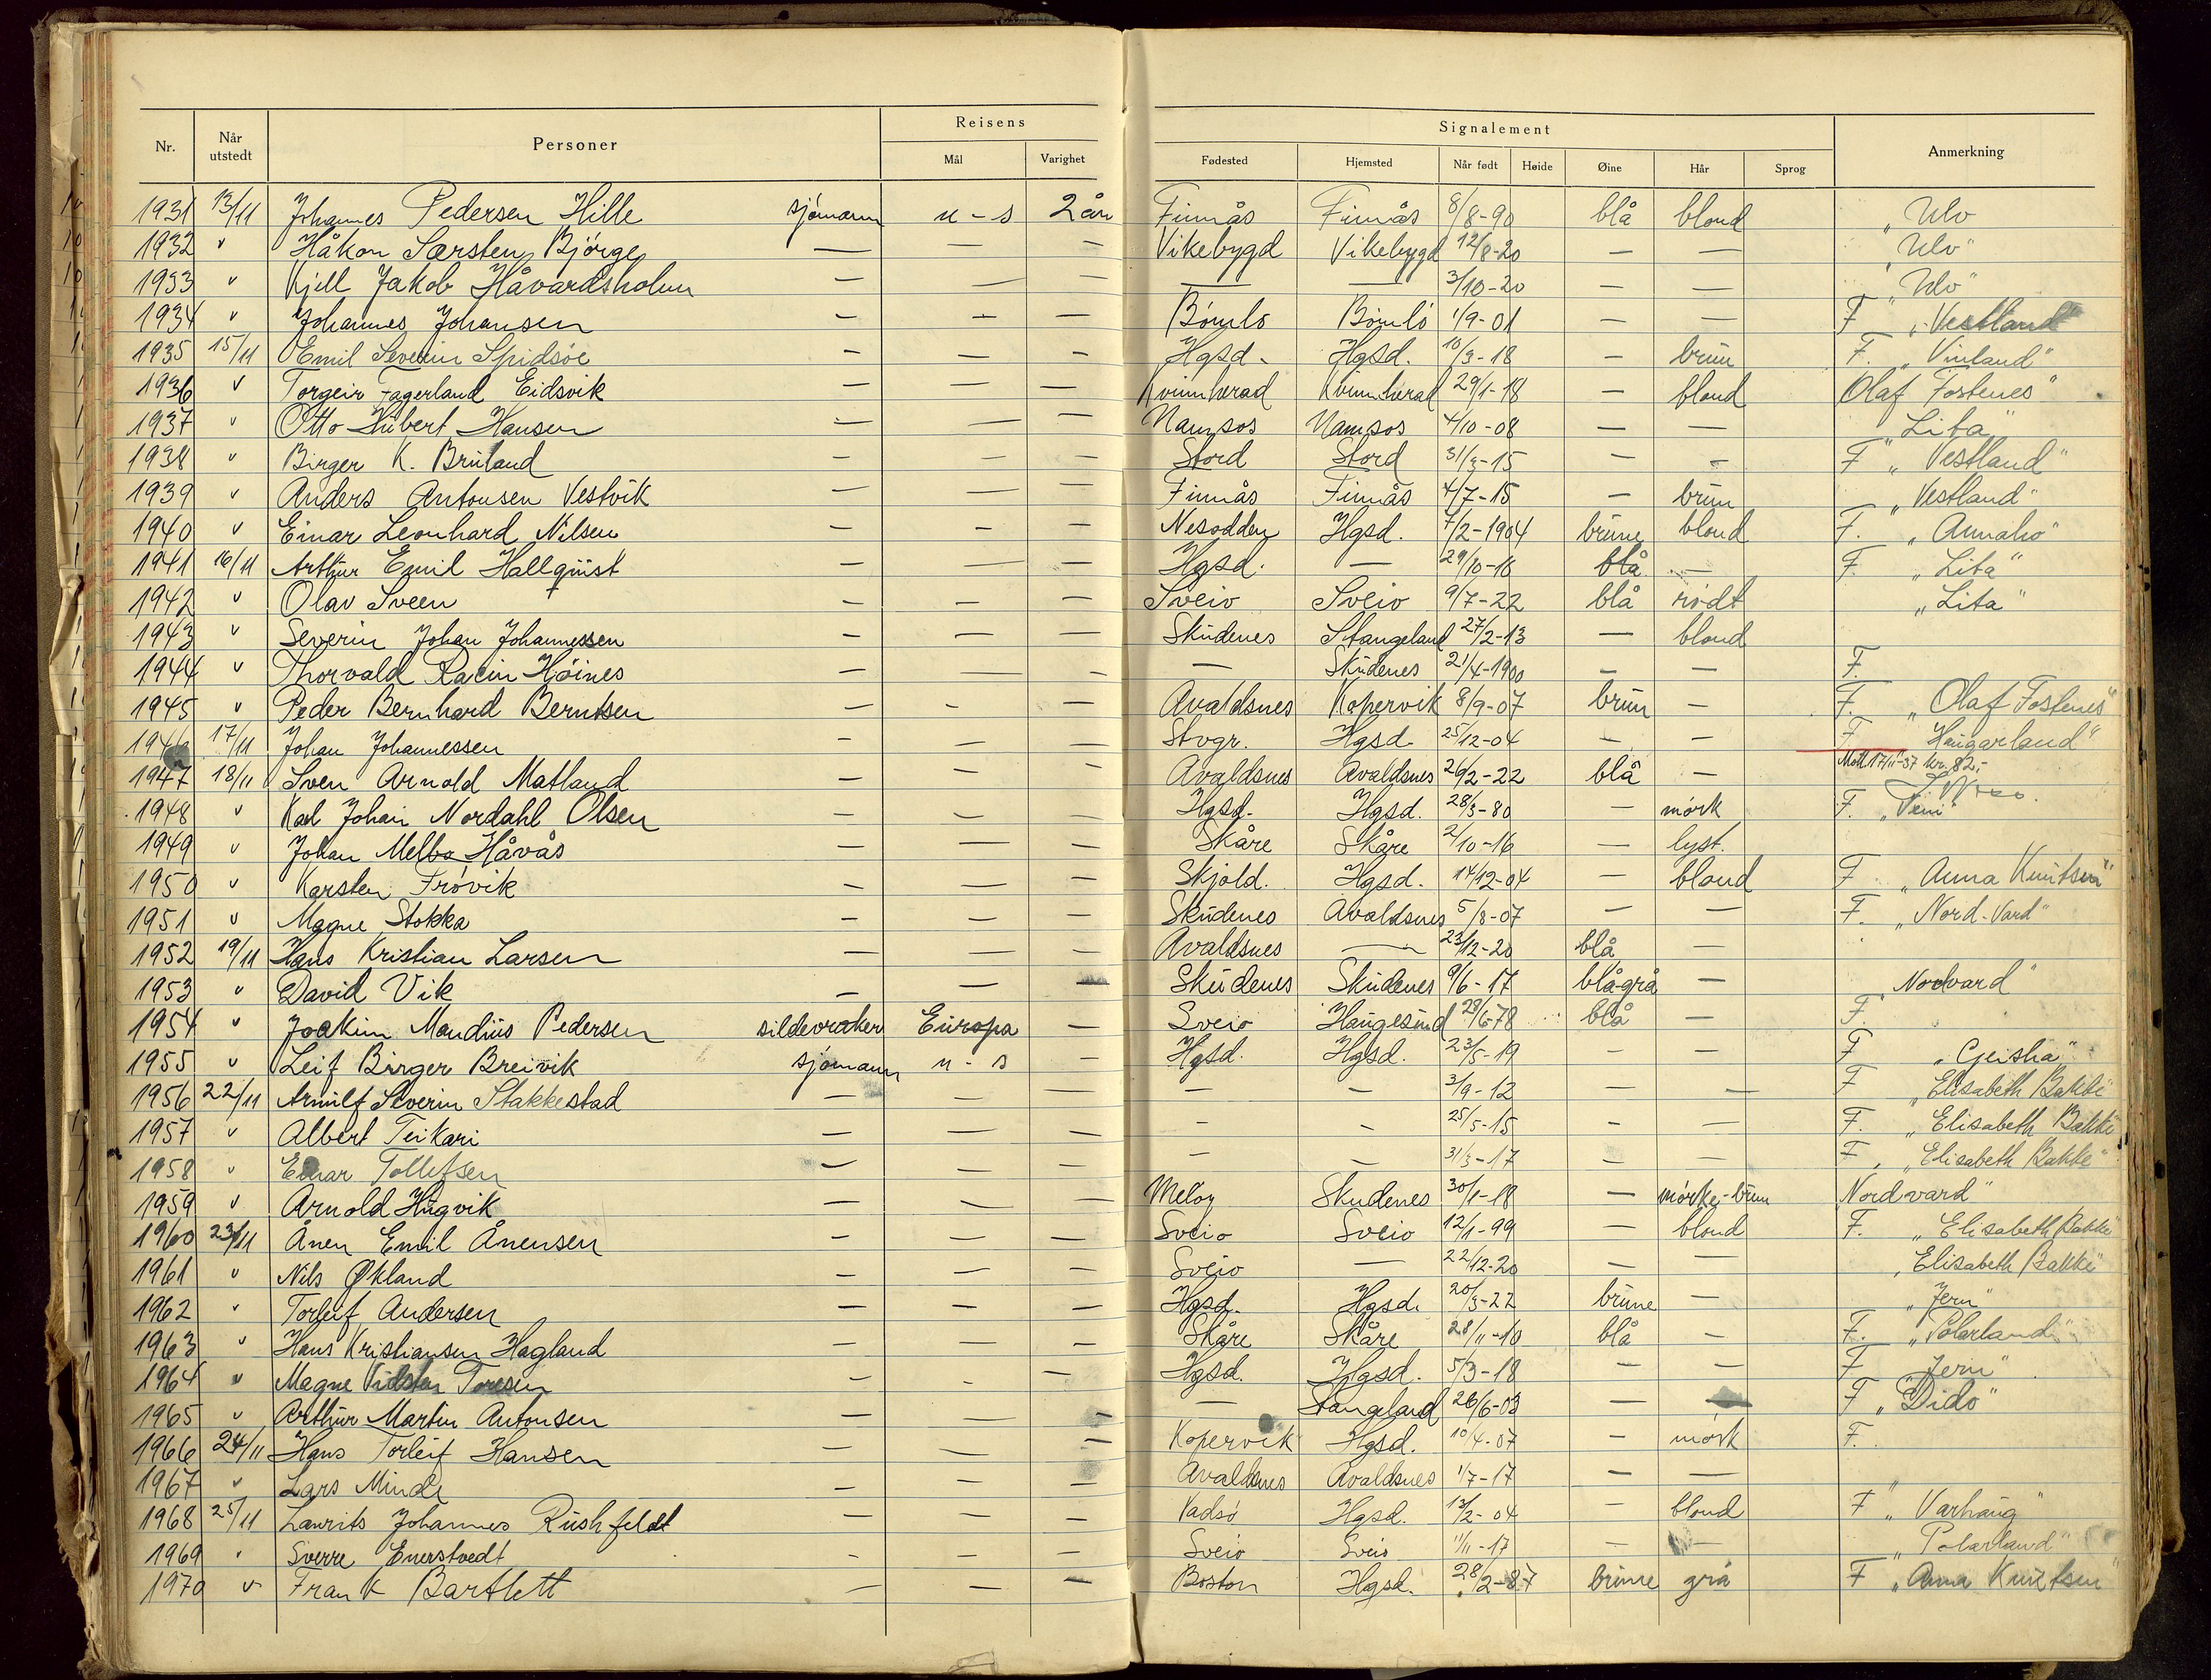 Reisens
Signalement
Nr. Når utstedt Personer Mål Varighet Fødested Hjemsted Når født Høide Øine Hår Sprog Anmerkning
1931 13/11 Johannes Pedersen Hille sjómann u - s 2 år Finnås Finnås 8/8-90 blå blond "Ulv
1932 " Håkon Særsten Bjórge — — — Vikebygd Vikebygd 12/8-20 — — "Ulv"
1933 " Kjell Jakob Håvardsholm — — — — — 3/10-20 — — "Ulv"
1934 " Johannes Johansen — — — Bómlo Bómló 1/9-01 — — F "Vestland"
1935 15/11 Emil Severin Spidsöe — — — Hgsd. Hgsd. 10/3-18 — brun F. "Vinland"
1936 " Torgeir Fagerland Eidsvik — — — Kvinnherad Kvinnherad 29/1-18 — blond Olaf Fostenes"
1937 " Otto Hubert Hansen — — — Namsos Namsos 4/10-08 — — "Lita"
1938 " Birger K. Bruland — — — Stord Stord 31/3-15 — — F "Vestland"
1939 " Anders Antonsen Vestvik — — — Finnås Finnås 4/7-15 — brun "Vestland"
1940 " Einar Leonhard Nilsen — — — Nesodden Hgsd. 7/2-1904 brune blond F. "Annaho"
1941 16/11 Arthur Emil Hallquist — — — Hgsd. — 29/10-16 blå — F. "Lita"
1942 " Olav Sveen — — — Sveio Sveio 9/7-22 blåródt "Lita"
1943 " Severin Johan Johannessen — — — Skudenes Stangeland 27/2-13 — blond
1944 " Thorvald Racin Hóines — — — — Skudenes 21/4-1900 — — F.
1945 " Peder Bernhard Berntsen — — — Avaldsnes Kopervik 8/9-07 brun — F. "Olaf Fostenes"
1946 17/11 Johan Johannessen — — — Stvgr. Hgsd. 25/12-04 — — F Haugarland"
1947 18/11 Sven Arnold Matland — — — Avaldsnes Avaldsnes 26/2-22 blå — Mott 17/11-37 kr. 82.-
1948 " Karl Johan Nordahl Olsen — — — Hgsd. Hgsd. 28/3-80 — mórk F.
1949 " Johan Melbo Håvås — — — Skåre Skåre 2/10-16 — lyst.
1950 " Karsten Fróvik — — — Skjold. Hgsd. 14/12-04 — blond F "Anna Knutsen"
1951 " Magne Stokka — — — Skudenes Avaldsnes 5/8-07 — — F. "Nord-Vard"
1952 19/11 Hans Kristian Larsen — — — Avaldsnes — 23/12-20 blå —
1953 " David Vik — — — Skudenes Skudenes 9/6-17 blå-grå — Nordvard"
1954 " Joakim Mandius Pedersen sildevraker Europa — Sveio Haugesund 29/6-78 blå — F.
1955 " Leif Birger Breivik sjómann u - s — Hgsd. Hgsd. 23/5-19 — — F "Geisha"
1956 22/11 Arnulf Severin Stakkestad — — — — — 3/9-12 — — F "Elisabeth Bakke"
1957 " Albert Teikari — — — — — 25/5-15 — — F. "Elisabeth Bakke"
1958 " Einar Tollefsen — — — — — 31/3-17 — — F. "Elisabeth Bakke"
1959 " Arnold Hugvik — — — Melöy Skudenes 30/1-18 — mórke-brun Nordvard"
1960 23/11 Ånen Emil Ånensen — — — Sveio Sveio 12/1-99 — blond F. "Elisabeth Bakke"
1961 " Nils Økland — — — Sveio — 22/12-20 — — "Elisabeth Bakke"
1962 " Torleif Andersen — — — Hgsd. Hgsd. 20/3-22 brune — "Jern"
1963 " Hans Kristiansen Hagland — — — Skåre Skåre 28/11-10 blå — F. "Polarland"
1964 " Magne Vidstar Toresen — — — Hgsd. Hgsd. 5/3-18 — — F Jern"
1965 " Arthur Martin Antonsen — — — — Stangeland 26/6-03 — — F "Dido"
1966 24/11 Hans Torleif Hansen — — — Kopervik Hgsd. 10/4-07 — mórk F.
1967 " Lars Minde — — — Avaldsnes Avaldsnes 1/7-17 — — "
1968 25/11 Laurits Johannes Rushfeldt — — — Vadsó Hgsd. 13/2-04 — blond F "Varhaug"
1969 " Sverre Enerstvedt — — — Sveio Sveio 11/11-17 — — "Polarland"
1970 " Frank Bartlett — — — Boston Hgsd. 28/2-87 brune grå F "Anna Knutsen"